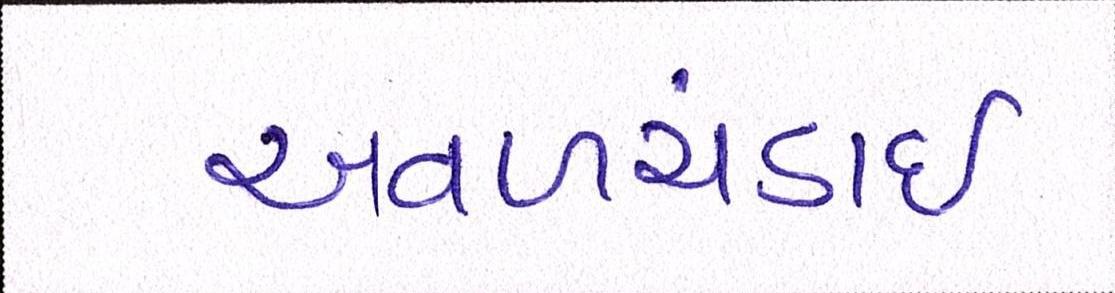 અવળચંડાઈ